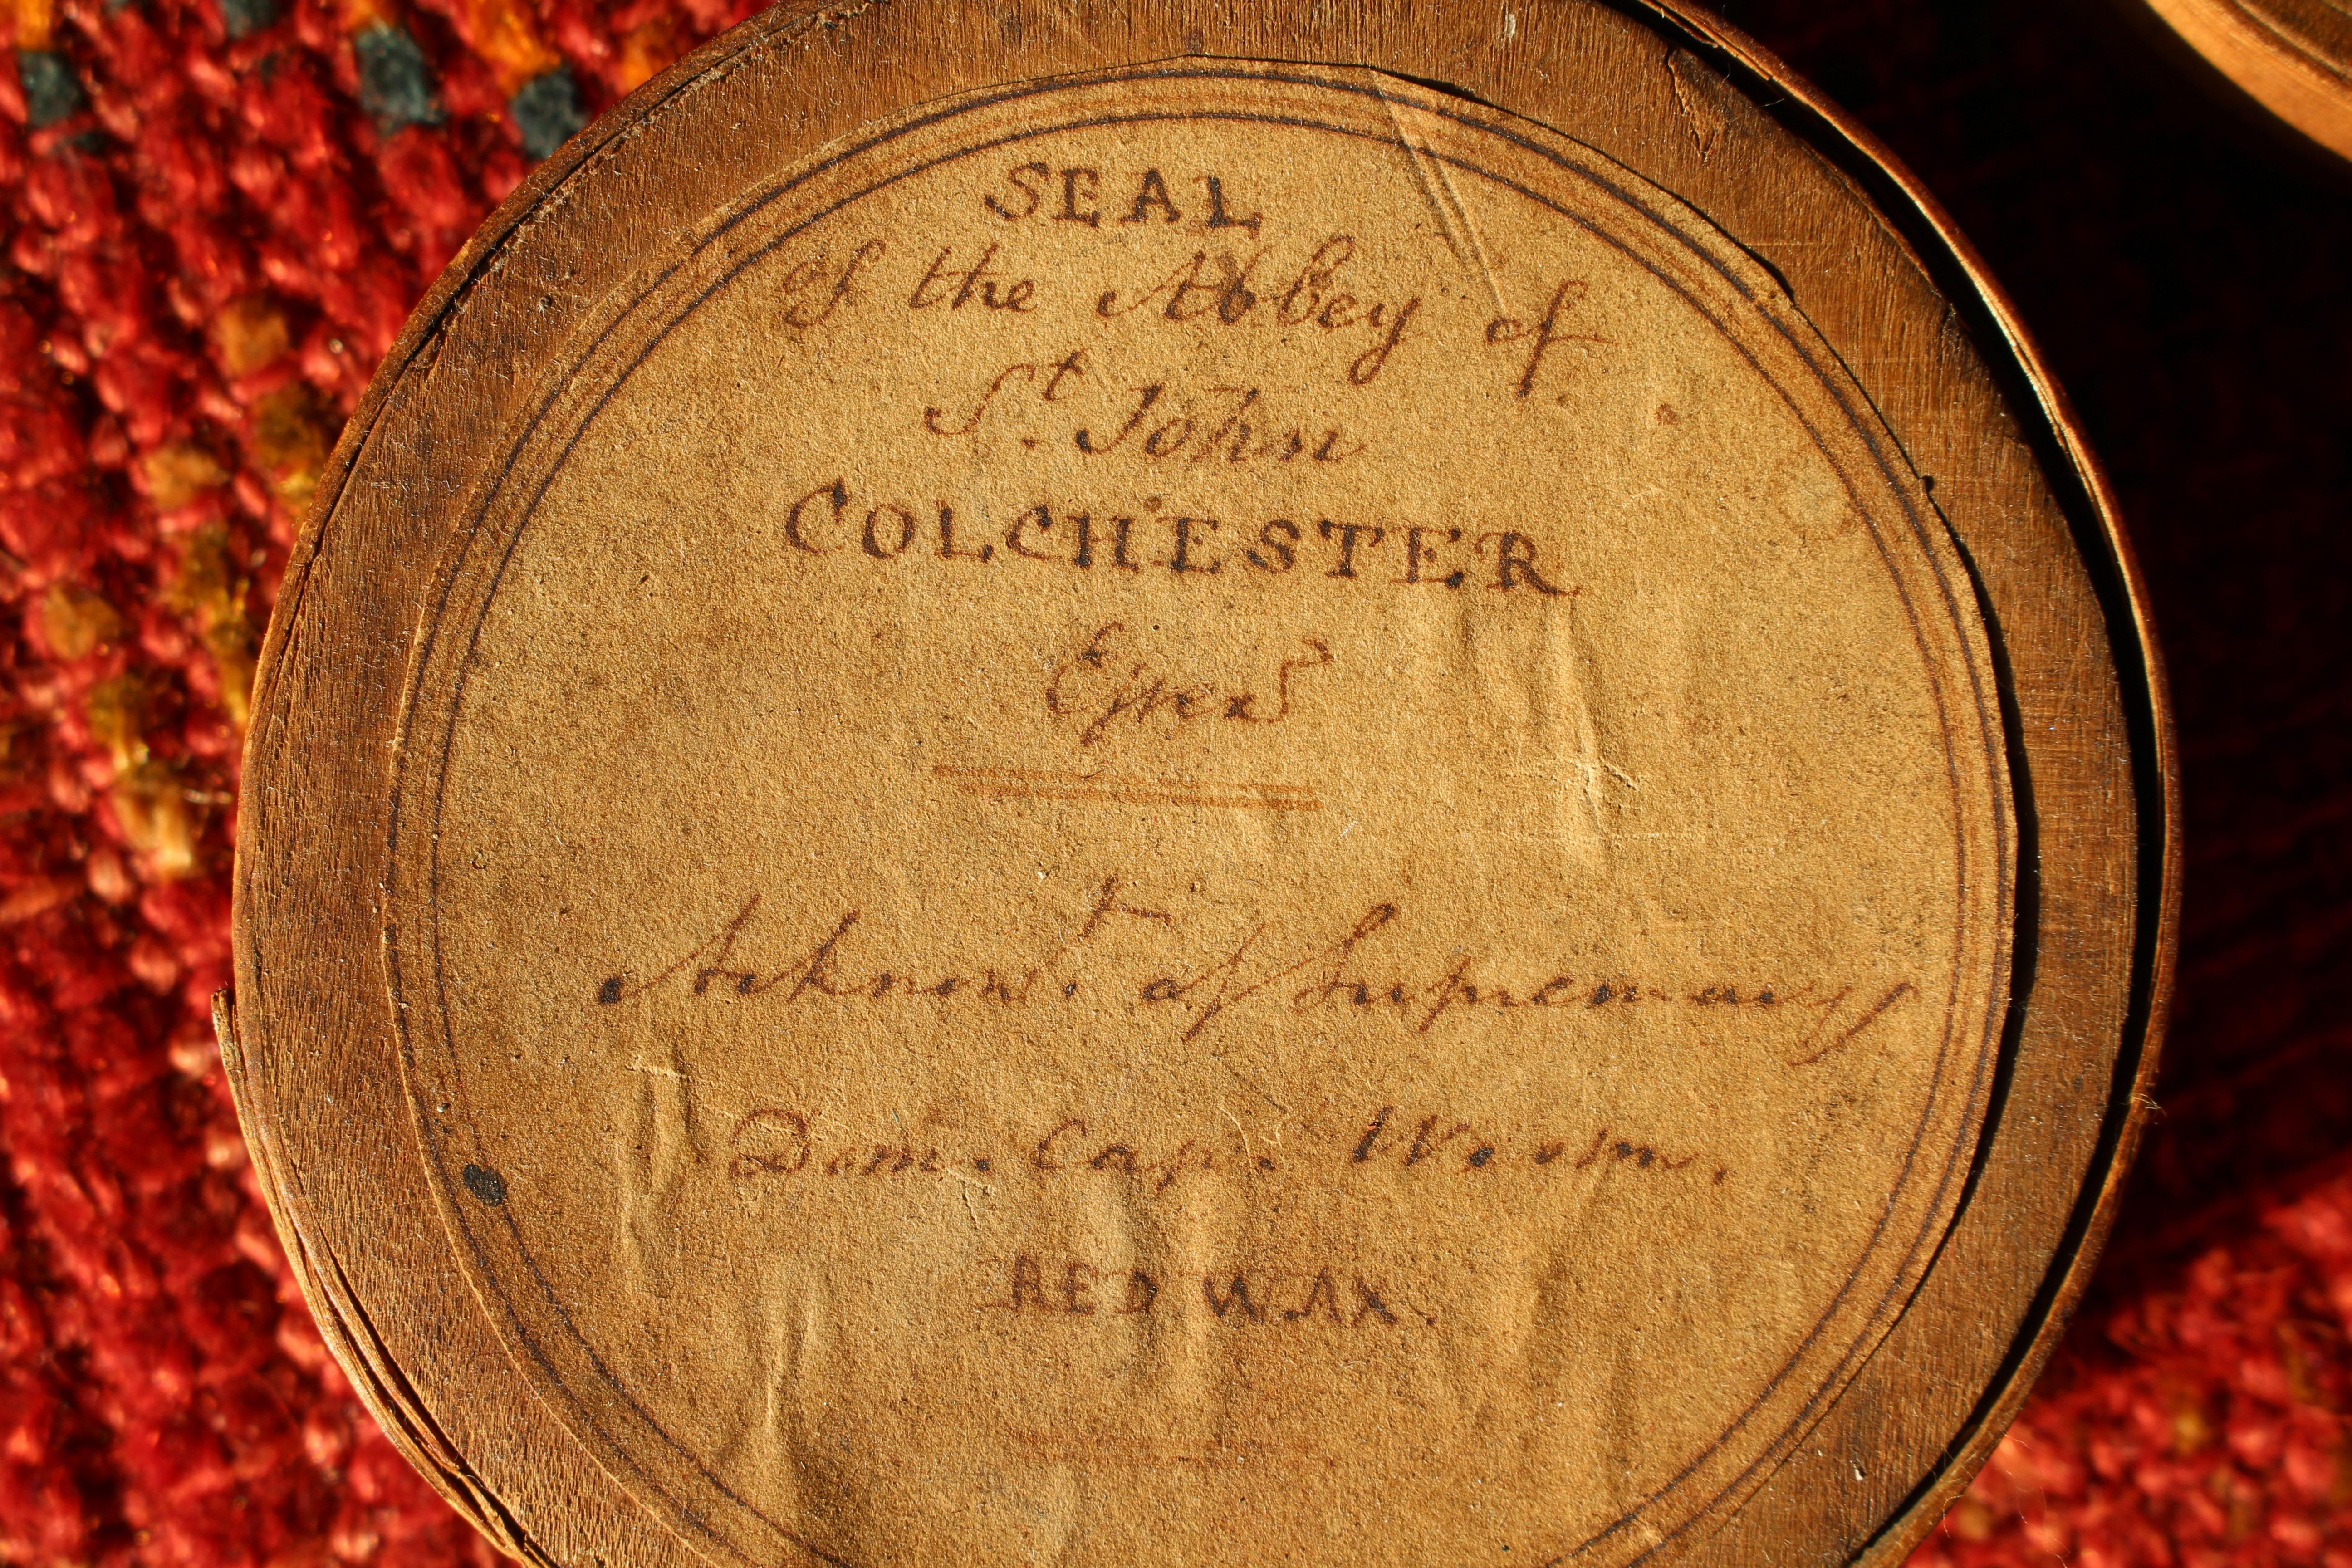 SEAL
of the Abbey of
St. John
COLCHESTER
Essex
Acknowt. of Supremacy
Dom. Cap. Westm.
RED WAX.